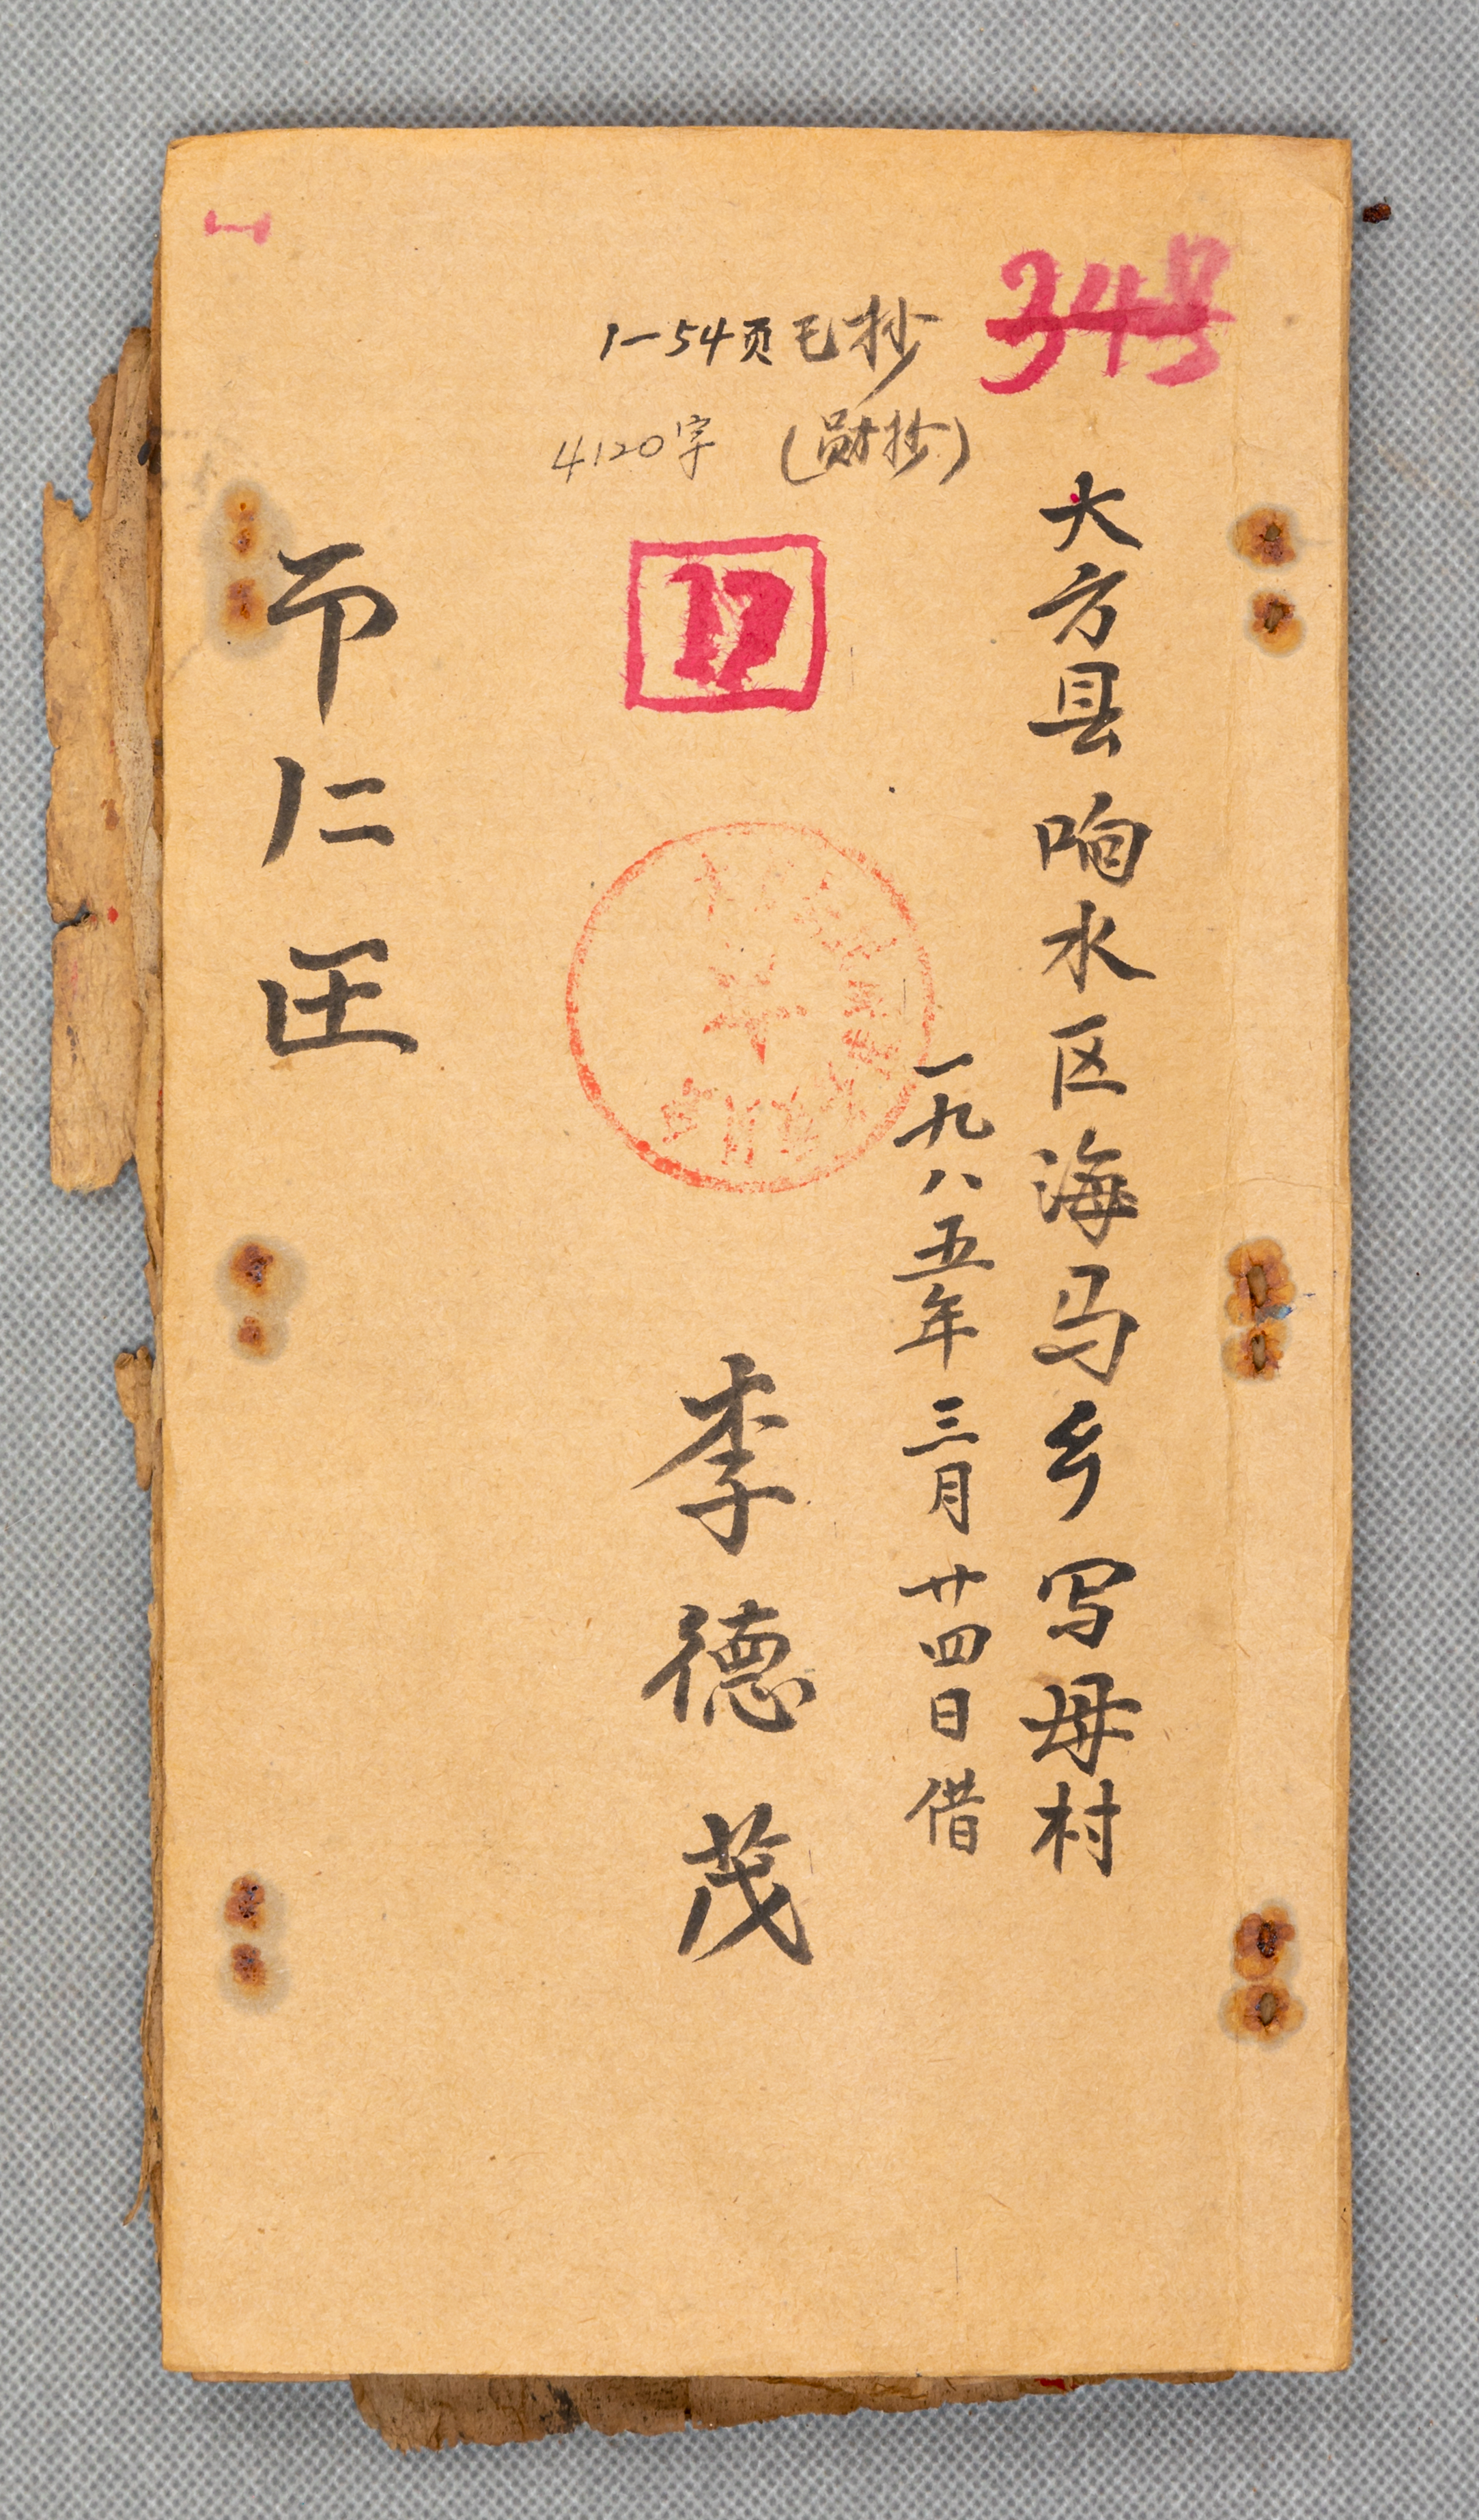 34号
1—54页已抄
4120字
17
大方县响水区海马乡写母村
一九八五年三月廿四日借
李德茂